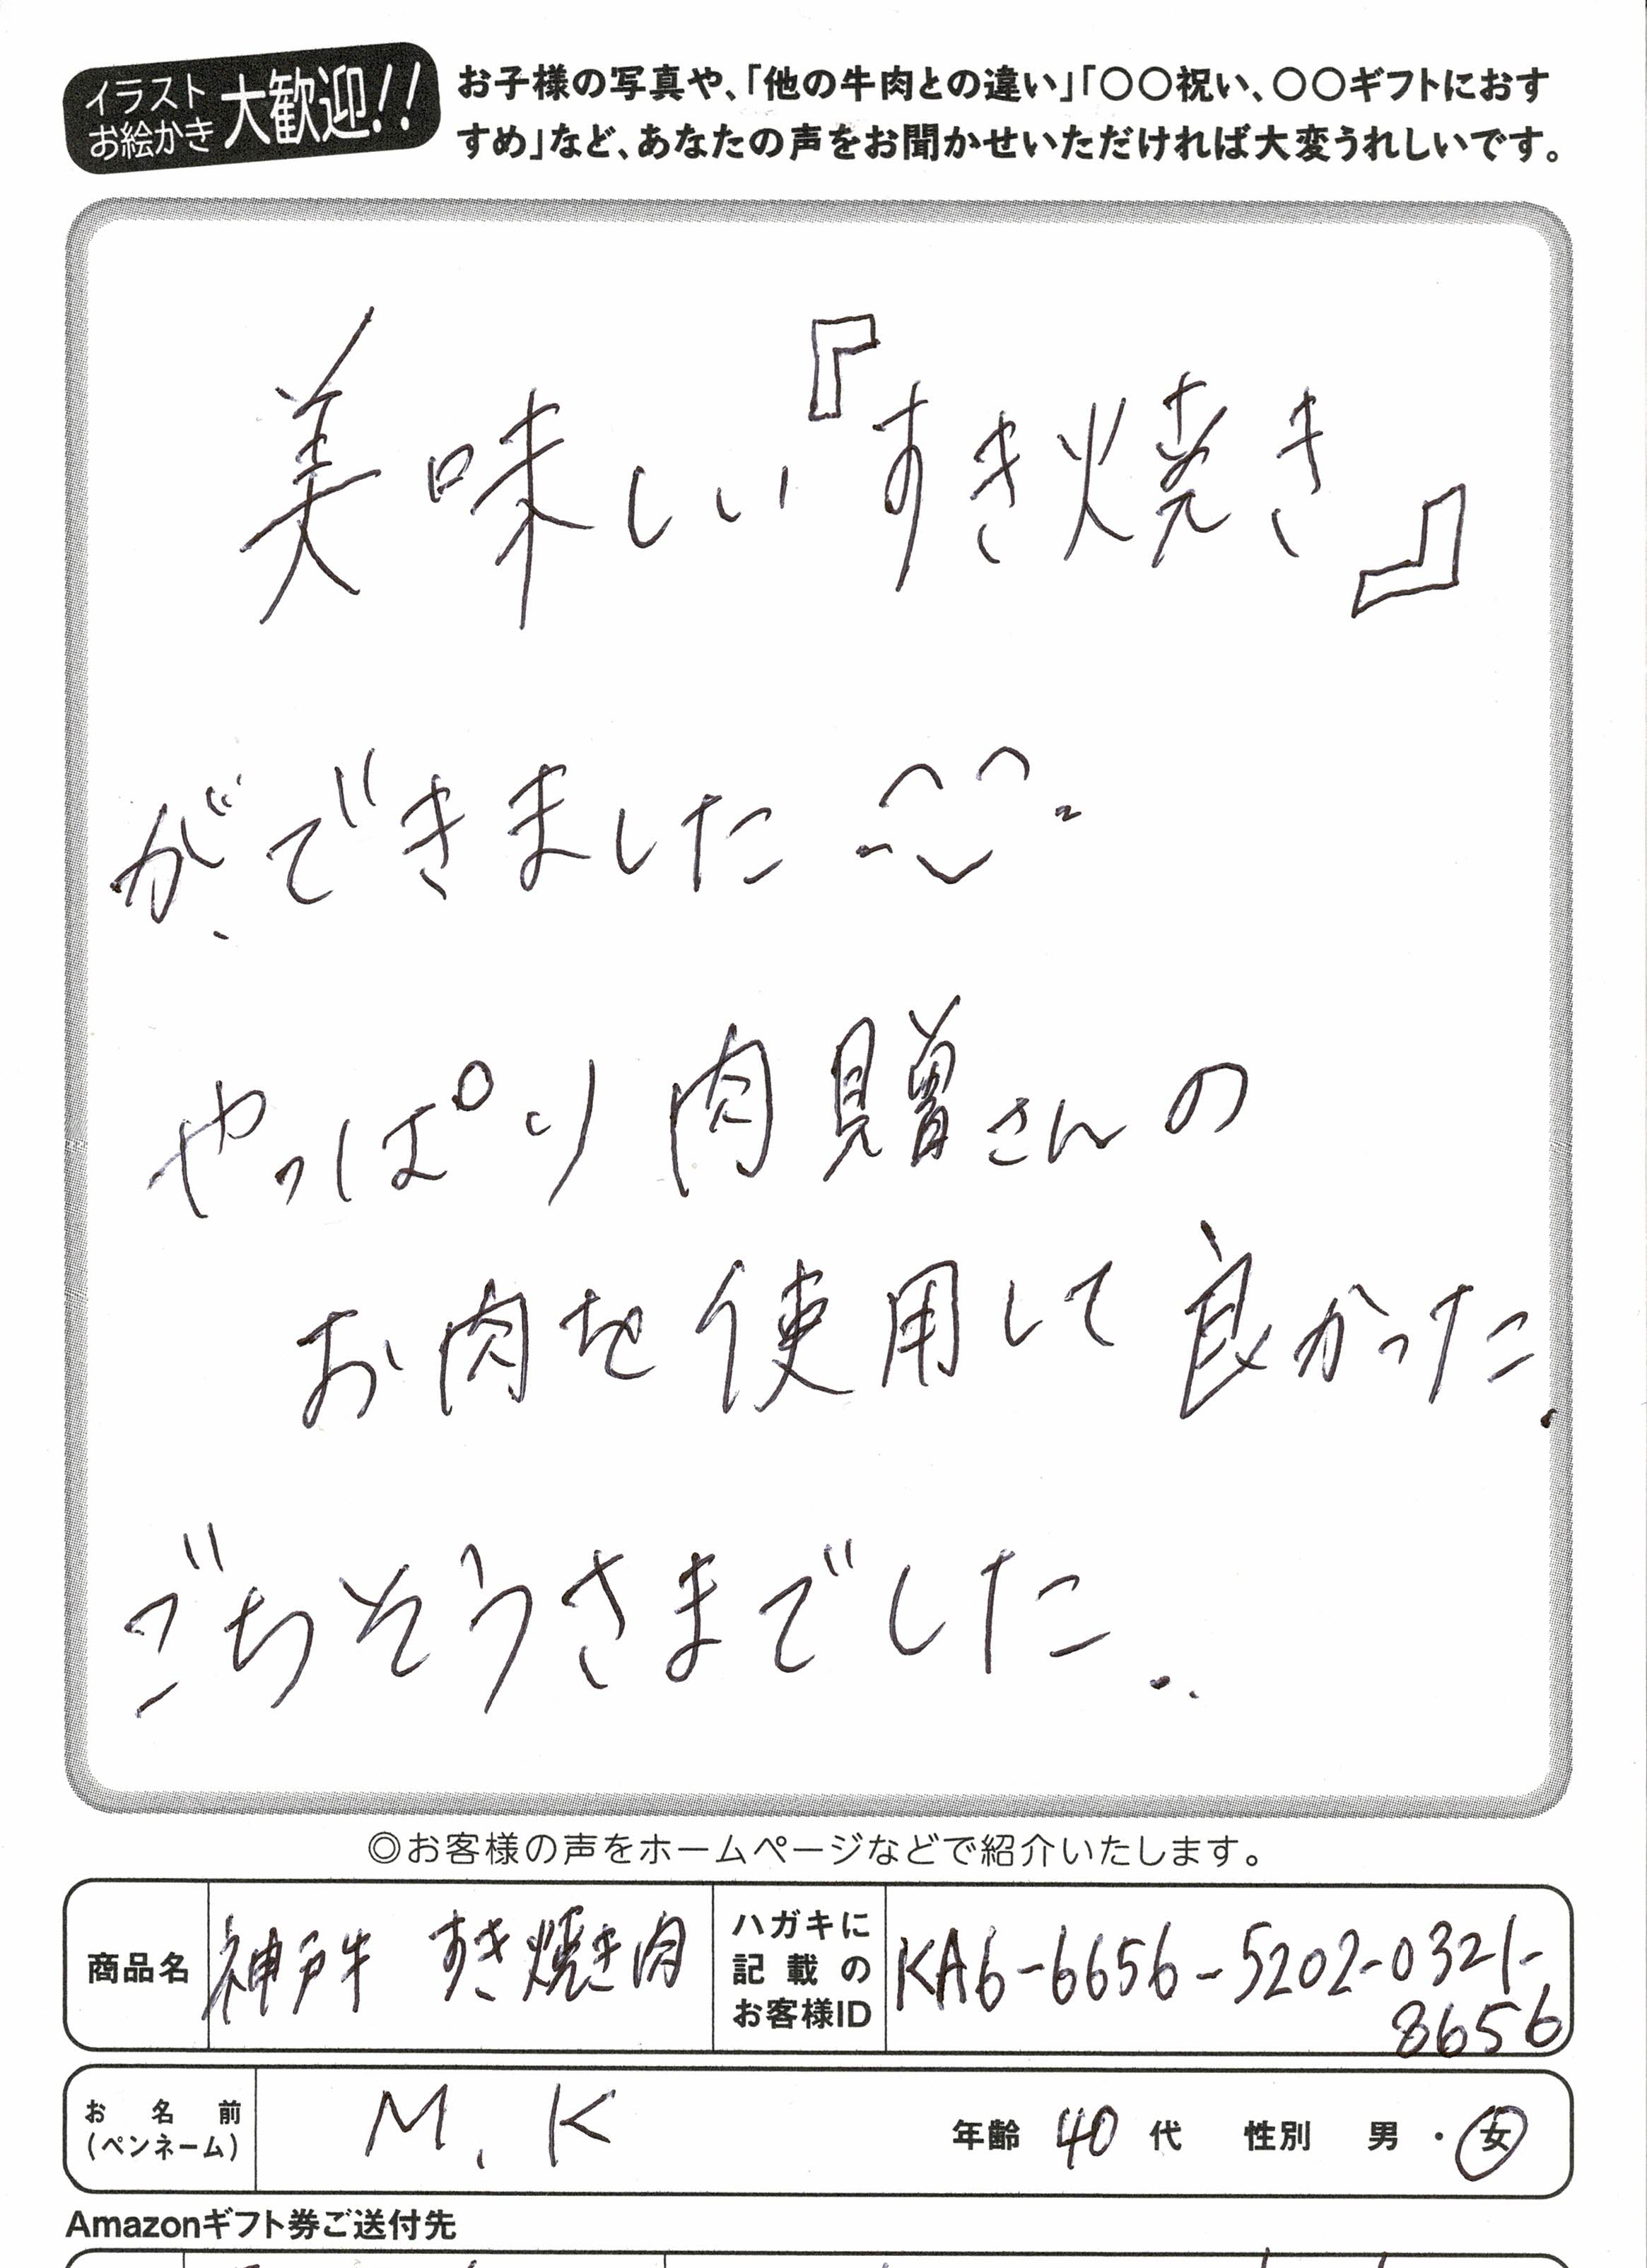 イラスト
お絵かき
大歓迎!!
お子様の写真や、「他の牛肉との違い」「〇〇祝い、〇〇ギフトにおす
すめ」など、あなたの声をお聞かせいただければ大変うれしいです。
美味しい『すき焼き』
ができました
やっぱり肉贈さんの
お肉を使用して良かった.
ごちそうさまでした.
◎お客様の声をホームページなどで紹介いたします。
商品名
神戸牛 すき焼き肉
ハガキに
記載の
お客様ID
KA6-6656-5202-0321-
8656
お名前
(ペンネーム)
M.K
年齢 40 代 性別 男・女
Amazonギフト券ご送付先